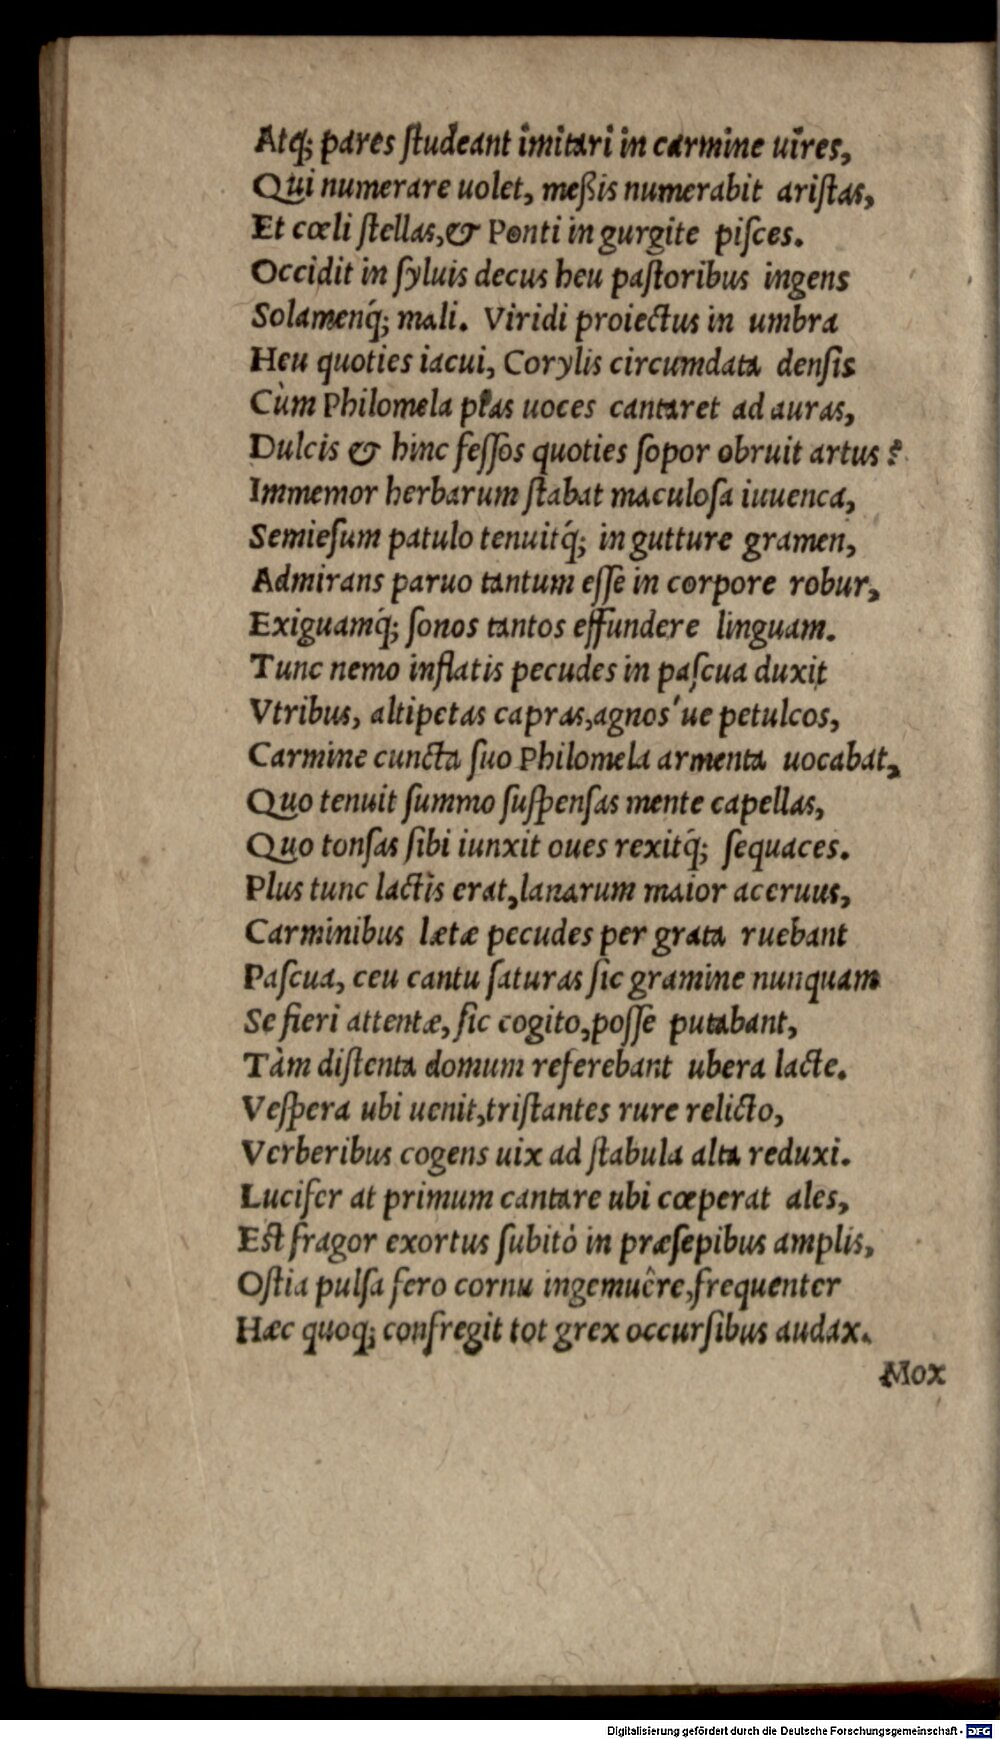 Atq; pares ſtudeant imitari in carmine uires,
Qui numerare uolet, meßis numerabit ariſtas,
Et cœli ſtellas, & Ponti in gurgite piſces.
Occidit in ſyluis decus heu paſtoribus ingens
Solamenq́; mali. Viridi proiectus in umbra
Heu quoties iacui, Corylis circumdata denſis
Cùm Philomela pias uoces cantaret ad auras,
Dulcis & hinc feſſos quoties ſopor obruit artus?
Immemor herbarum ſtabat maculoſa iuuenca,
Semieſum patulo tenuitq́; in gutture gramen,
Admirans paruo tantum eſſe in corpore robur,
Exiguamq́; ſonos tantos effundere linguam.
Tunc nemo inflatis pecudes in paſcua duxit
Vtribus, altipetas capras, agnos'ue petulcos,
Carmine cuncta ſuo Philomela armenta uocabat,
Quo tenuit ſummo ſuſpenſas mente capellas,
Quo tonſas ſibi iunxit oues rexitq́; ſequaces.
Plus tunc lactis erat, lanarum maior aceruus,
Carminibus lætæ pecudes per grata ruebant
Paſcua, ceu cantu ſaturas ſic gramine nunquam
Se fieri attentæ, ſic cogito, poſſe putabant,
Tàm diſtenta domum referebant ubera lacte.
Veſpera ubi uenit, triſtantes rure relicto,
Verberibus cogens uix ad ſtabula alta reduxi.
Lucifer at primum cantare ubi cœperat ales,
Eſt fragor exortus ſubitò in præſepibus amplis,
Oſtia pulſa fero cornu ingemuêre, frequenter
Hæc quoq; confregit tot grex occurſibus audax.
Mox
Digitalisierung gefördert durch die Deutsche Forschungsgemeinschaft - DFG